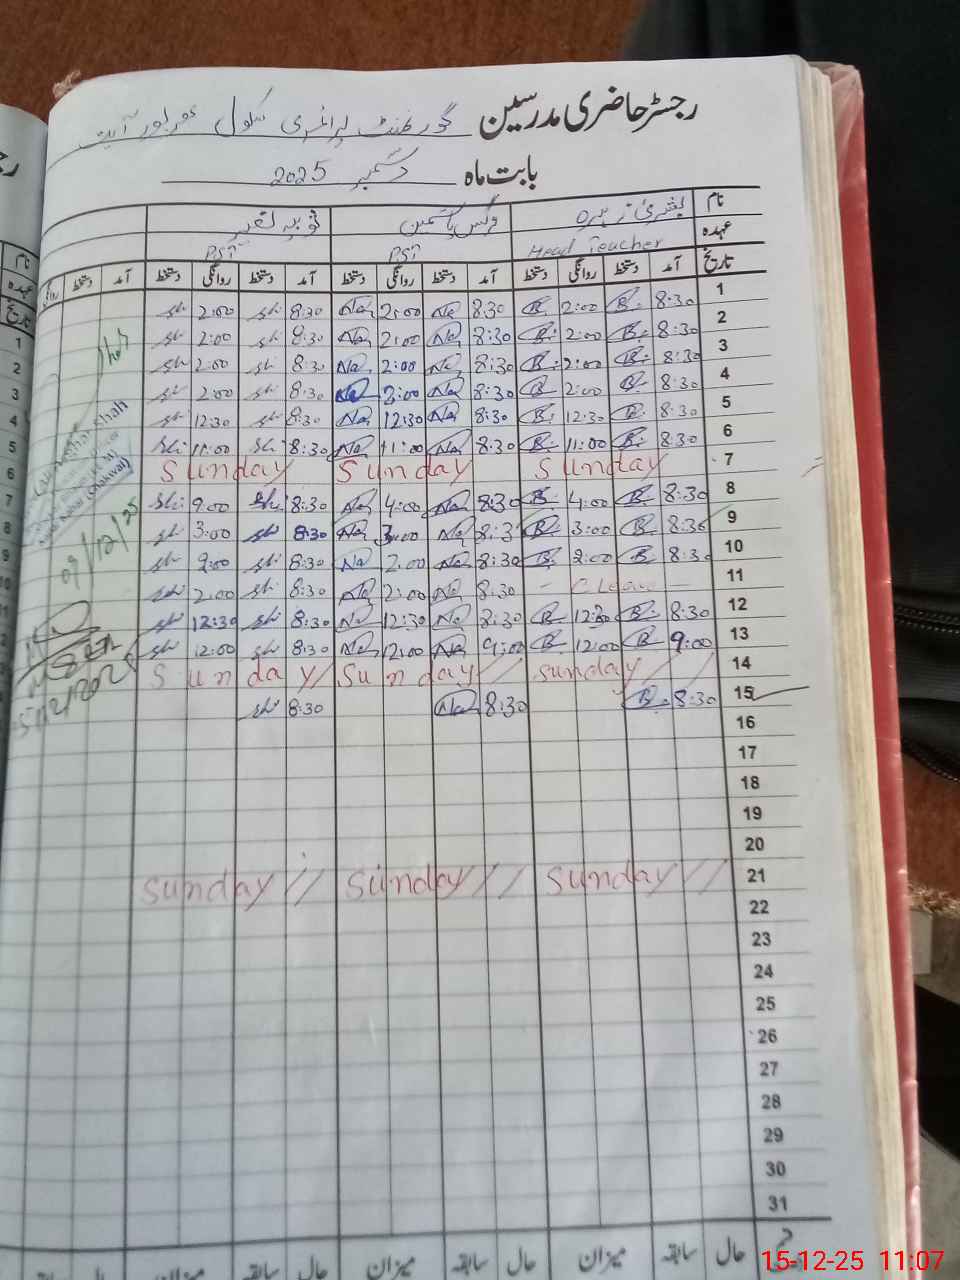 رجسٹر حاضری مدرسین گورنمنٹ پرائمری سکول
بابت ماہ دسمبر 2025
نام بشریٰ زہرہ نرگس یاسمین ثوبیہ
عہدہ Head Teacher PST PST
تاریخ آمد دستخط روانگی دستخط آمد دستخط روانگی دستخط آمد دستخط روانگی دستخط آمد دستخط روانگی
1 8:30 B. 2:00 B. 8:30 Na 2:00 Na 8:30 sh 2:00 sh
2 8:30 B. 2:00 B. 8:30 Na 2:00 Na 8:30 sh 2:00 sh
3 8:30 B. 2:00 B. 8:30 Na 2:00 Na 8:30 sh 2:00 sh
4 8:30 B. 2:00 B. 8:30 Na 3:00 Na 8:30 sh 2:00 sh
5 8:30 B. 12:30 B. 8:30 Na 12:30 Na 8:30 sh 12:30 sh
6 8:30 B. 11:00 B. 8:30 Na 11:00 Na 8:30 sh 11:00 sh
7 Sunday Sunday Sunday
8 8:30 B. 4:00 B. 8:30 Na 4:00 Na 8:30 sh 9:00 sh
9 8:30 B. 3:00 B. 8:3 Na 3:00 Na 8:30 sh 3:00 sh
10 8:30 B. 2:00 B. 8:30 Na 2:00 Na 8:30 sh 2:00 sh
11 8:30 Na 2:00 Na 8:30 sh 2:00 sh
12 8:30 B. 12:30 B. 8:30 Na 12:30 Na 8:30 sh 12:30 sh
13 9:00 B. 12:00 B. 9:00 Na 12:00 Na 8:30 sh 12:00 sh
14 Sunday Sunday Sunday
15 8:30 B. 8:30 Na 8:30 sh
16
17
18
19
20
21 Sunday Sunday Sunday
22
23
24
25
26
27
28
29
30
31
حال سابقہ میزان حال سابقہ میزان حال سابقہ میزان حال
09/12/25
15-12-25 11:07